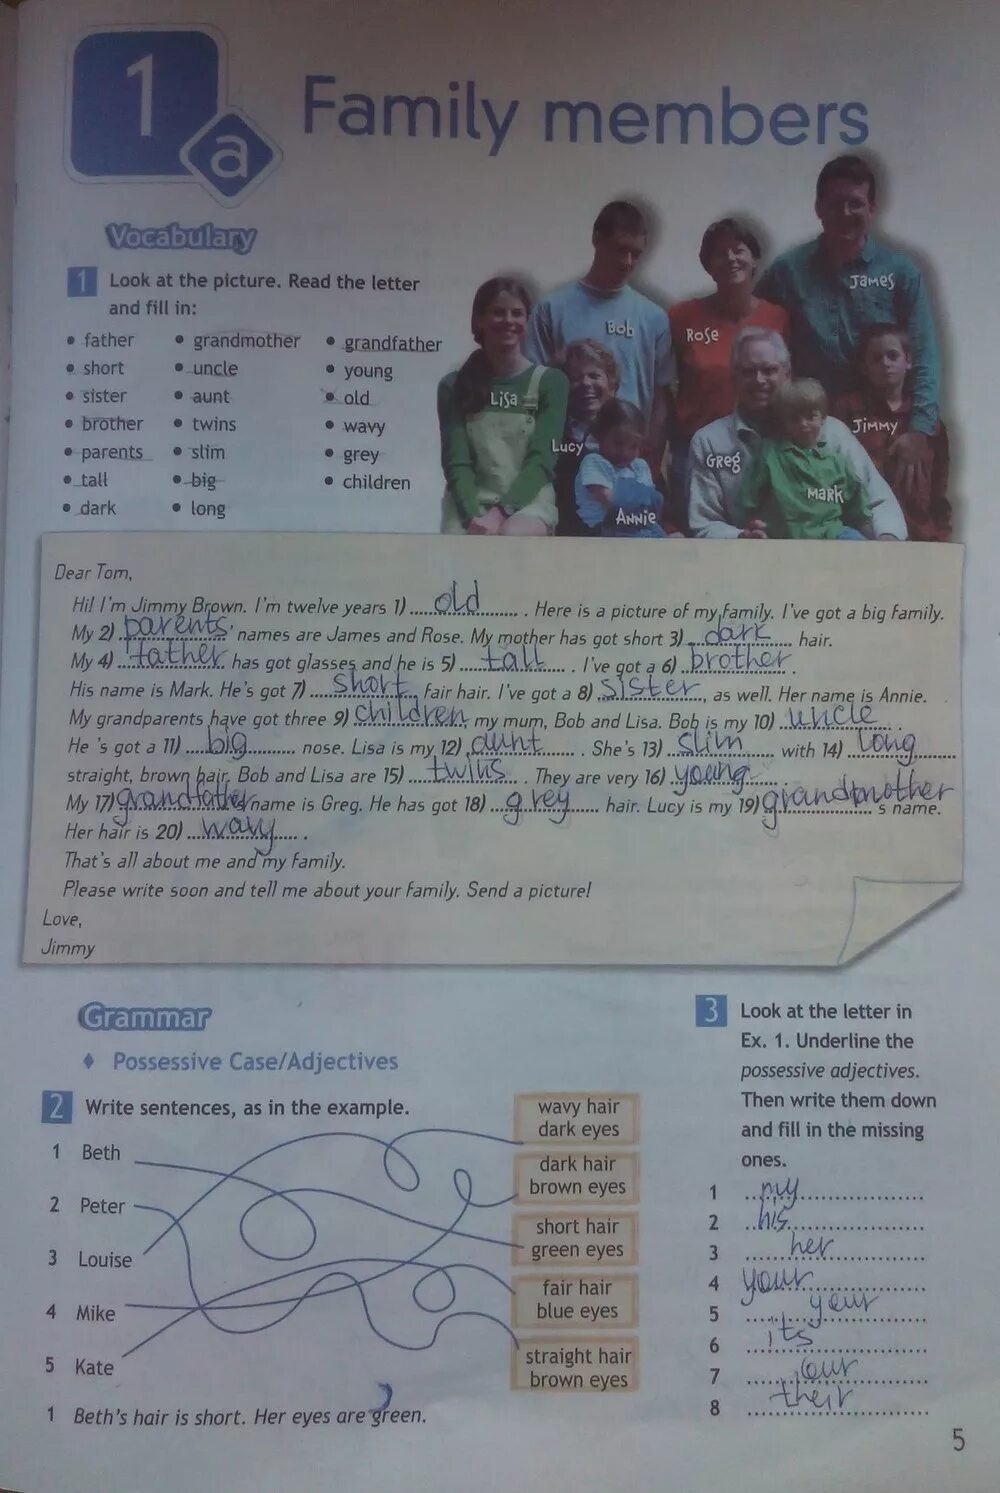 1
a
Family members
Vocabulary
1 Look at the picture. Read the letter
and fill in:
• father • grandmother • grandfather
• short • uncle • young
• sister • aunt • old
• brother • twins • wavy
• parents • slim • grey
• tall • big • children
• dark • long
James
Bob
Rose
Lisa
Lucy
Jimmy
Greg
Mark
Annie
Dear Tom,
Hi! I'm Jimmy Brown. I'm twelve years 1) old. Here is a picture of my family. I've got a big family.
My 2) parents' names are James and Rose. My mother has got short 3) dark hair.
My 4) father has got glasses and he is 5) tall. I've got a 6) brother.
His name is Mark. He's got 7) short, fair hair. I've got a 8) sister, as well. Her name is Annie.
My grandparents have got three 9) children my mum, Bob and Lisa. Bob is my 10) uncle.
He 's got a 11) big nose. Lisa is my 12) aunt. She's 13) slim with 14) long
straight, brown hair. Bob and Lisa are 15) twins. They are very 16) young.
My 17) grandfather name is Greg. He has got 18) grey hair. Lucy is my 19) grandmother s name.
Her hair is 20) wavy.
That's all about me and my family.
Please write soon and tell me about your family. Send a picture!
Love,
Jimmy
Grammar
♦ Possessive Case/Adjectives
2 Write sentences, as in the example.
1 Beth
2 Peter
3 Louise
4 Mike
5 Kate
wavy hair
dark eyes
dark hair
brown eyes
short hair
green eyes
fair hair
blue eyes
straight hair
brown eyes
1 Beth's hair is short. Her eyes are green.
3 Look at the letter in
Ex. 1. Underline the
possessive adjectives.
Then write them down
and fill in the missing
ones.
1 my
2 his
3 her
4 your
5 your
6 its
7 our
8 their
5